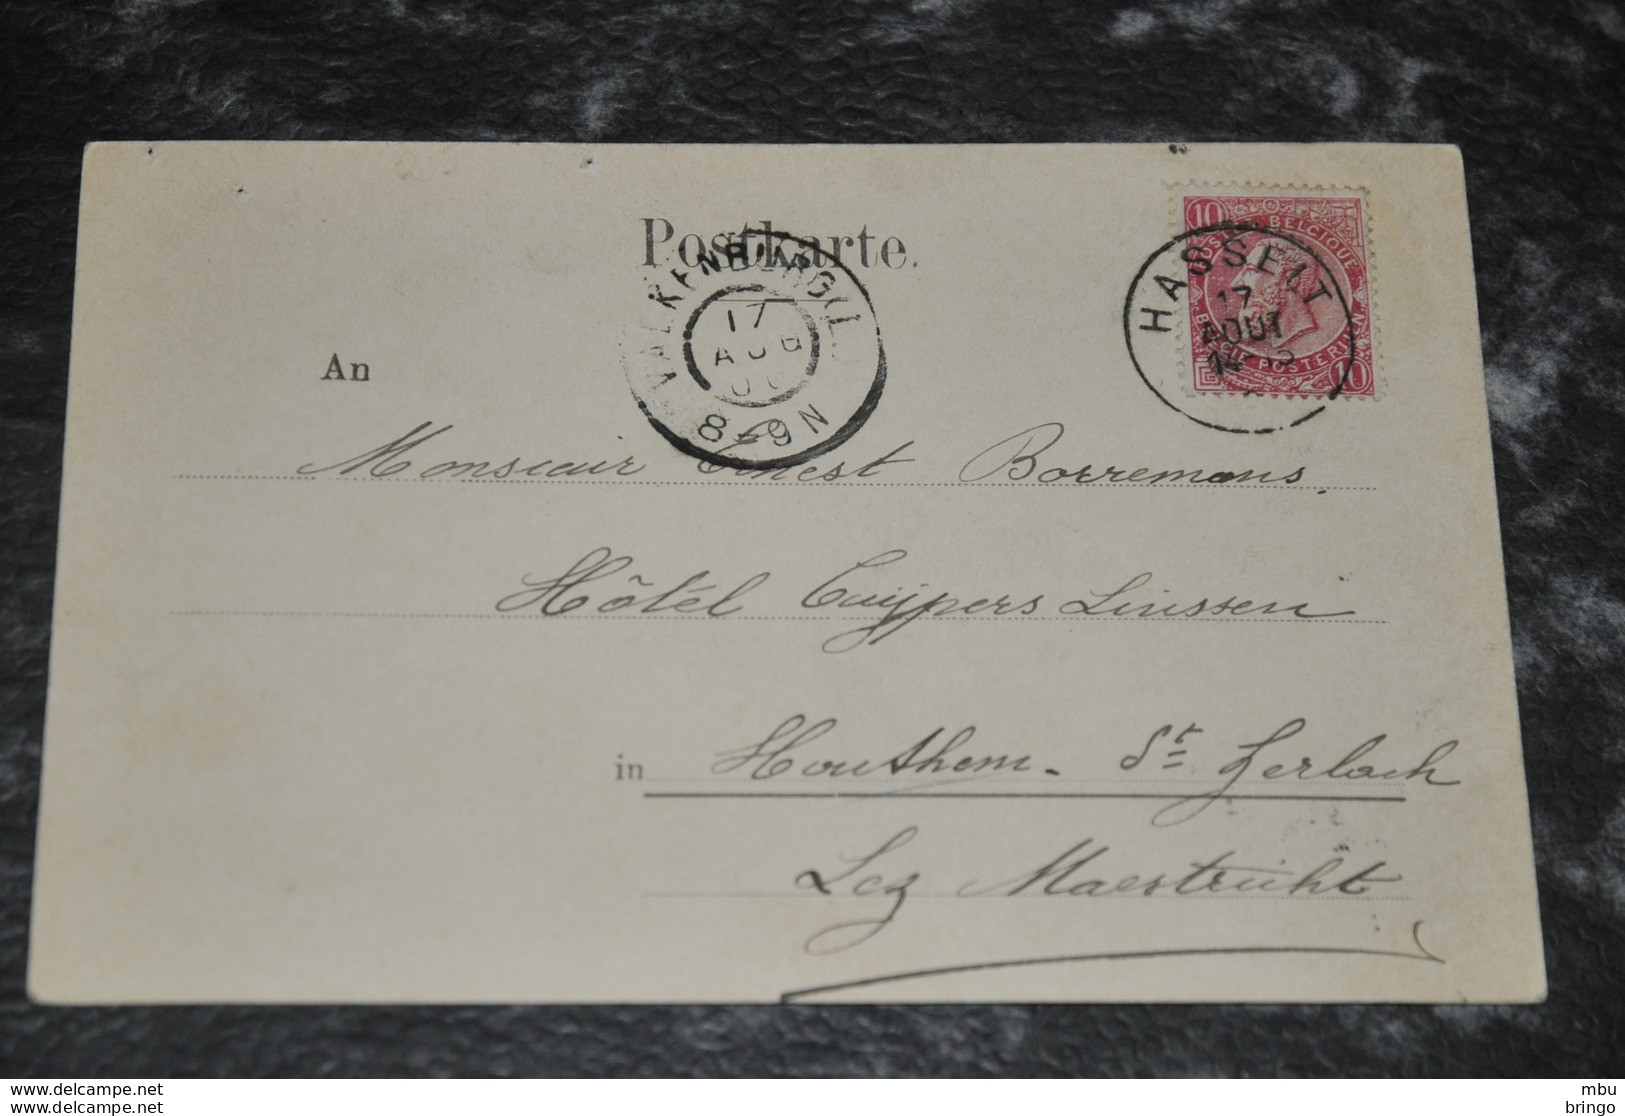 Postkarte.
VALKENBURG (L
17
AUG
8-9N
10 10
POSTES BELGIQUE
BELGIE POSTERIJEN
10
HASSELT
17
AOUT
An
Monsieur Ernest Borremans.
Hôtel Cuijpers Linssen
in Houthem - St Gerlach
Lez Maestricht
delcampe.net
delcampe.net
mbu
bringo